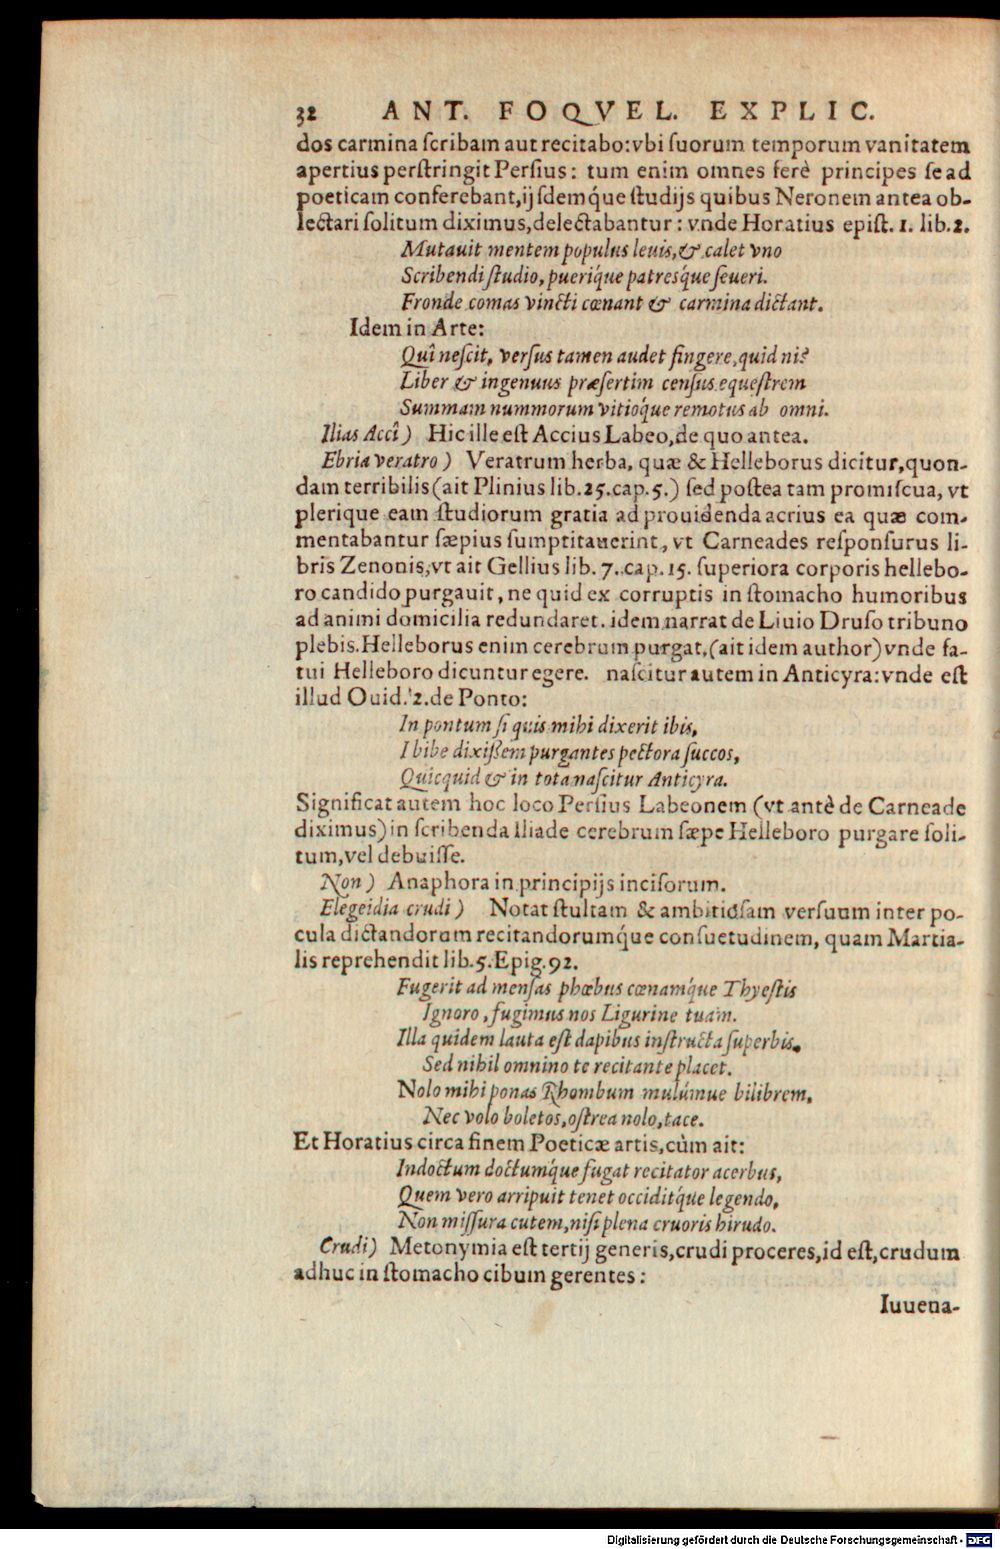 32 ANT. FOQVEL. EXPLIC.
dos carmina ſcribam aut recitabo: vbi ſuorum temporum vanitatem
apertius perſtringit Perſius: tum enim omnes ferè principes ſe ad
poeticam conferebant, ijſdemq́ue ſtudijs quibus Neronem antea ob-
lectari ſolitum diximus, delectabantur: vnde Horatius epiſt. 1. lib. 2.
Mutauit mentem populus leuis, & calet vno
Scribendi ſtudio, pueriq́ue patresq́ue ſeueri.
Fronde comas vincti cœnant & carmina dictant.
Idem in Arte:
Quî neſcit, verſus tamen audet fingere, quid ni?
Liber & ingenuus præſertim cenſus equeſtrem
Summam nummorum vitioq́ue remotus ab omni.
Ilias Accî) Hic ille eſt Accius Labeo, de quo antea.
Ebria veratro) Veratrum herba, quæ & Helleborus dicitur, quon-
dam terribilis (ait Plinius lib. 25. cap. 5.) ſed poſtea tam promiſcua, vt
plerique eam ſtudiorum gratia ad prouidenda acrius ea quæ com-
mentabantur ſæpius ſumptitauerint, vt Carneades reſponſurus li-
bris Zenonis, vt ait Gellius lib. 7. cap. 15. ſuperiora corporis hellebo-
ro candido purgauit, ne quid ex corruptis in ſtomacho humoribus
ad animi domicilia redundaret. idem narrat de Liuio Druſo tribuno
plebis. Helleborus enim cerebrum purgat, (ait idem author) vnde fa-
tui Helleboro dicuntur egere. naſcitur autem in Anticyra: vnde eſt
illud Ouid. 2. de Ponto:
In pontum ſi quis mihi dixerit ibis,
I bibe dixißem purgantes pectora ſuccos,
Quicquid & in tota naſcitur Anticyra.
Significat autem hoc loco Perſius Labeonem (vt antè de Carneade
diximus) in ſcribenda Iliade cerebrum ſæpe Helleboro purgare ſoli-
tum, vel debuiſſe.
Non) Anaphora in principijs inciſorum.
Elegeidia crudi) Notat ſtultam & ambitioſam verſuum inter po-
cula dictandorum recitandorumq́ue conſuetudinem, quam Martia-
lis reprehendit lib. 5. Epig. 92.
Fugerit ad menſas phœbus cœnamq́ue Thyeſtis
Ignoro, fugimus nos Ligurine tuam.
Illa quidem lauta eſt dapibus inſtructa ſuperbis,
Sed nihil omnino te recitante placet.
Nolo mihi ponas Rhombum mulúmue bilibrem,
Nec volo boletos, oſtrea nolo, tace.
Et Horatius circa finem Poeticæ artis, cùm ait:
Indoctum doctumq́ue fugat recitator acerbus,
Quem vero arripuit tenet occiditq́ue legendo,
Non miſſura cutem, niſi plena cruoris hirudo.
Crudi) Metonymia eſt tertij generis, crudi proceres, id eſt, crudum
adhuc in ſtomacho cibum gerentes:
Iuuena-
Digitalisierung gefördert durch die Deutsche Forschungsgemeinschaft - DFG